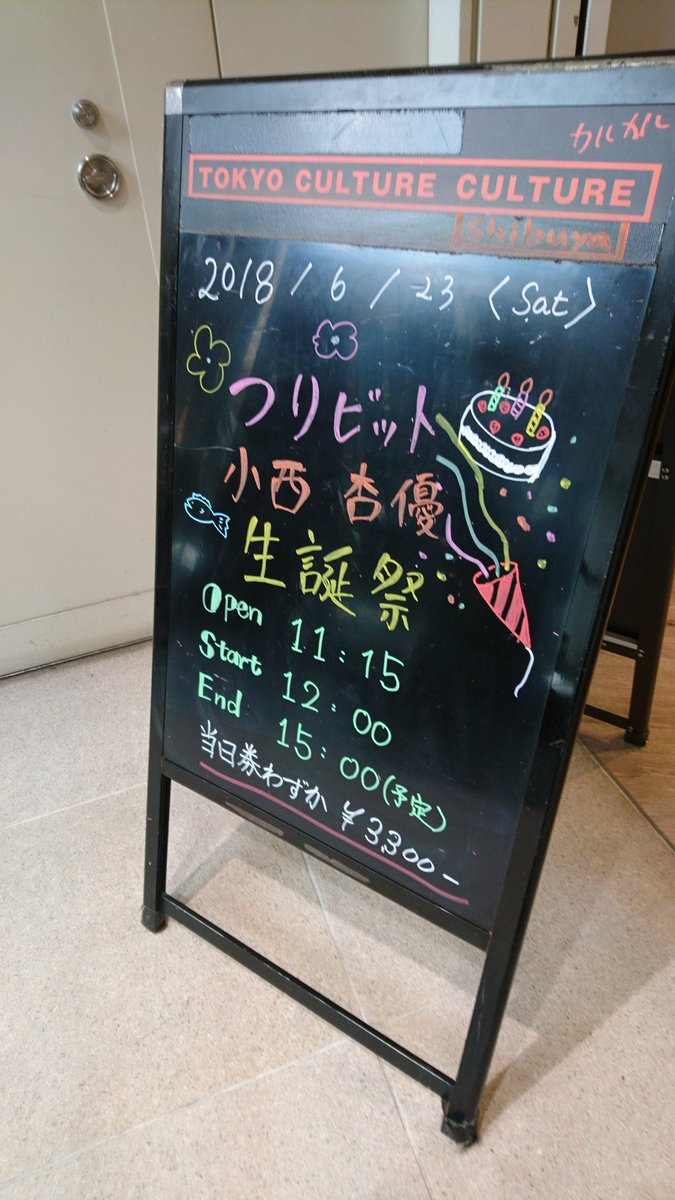 カルカル
TOKYO CULTURE CULTURE
Shibuya
2018/6/23〈Sat〉
つりビット
小西 杏優
生誕祭
Open 11:15
Start 12:00
End 15:00(予定)
当日券わずか ¥3,300-